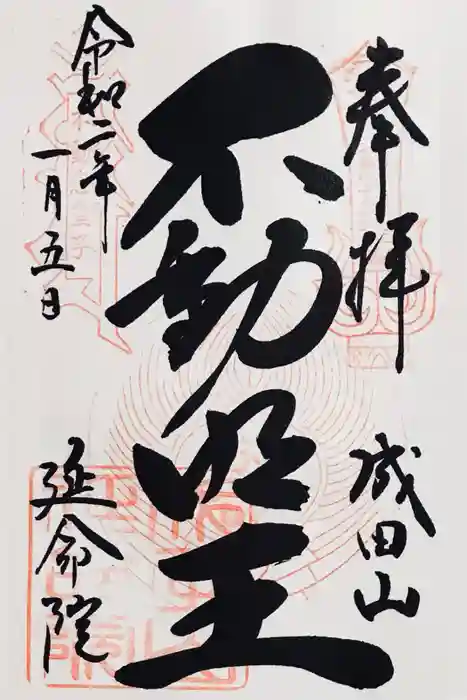 奉拝
成田山
不動明王
令和二年
一月五日
延命院